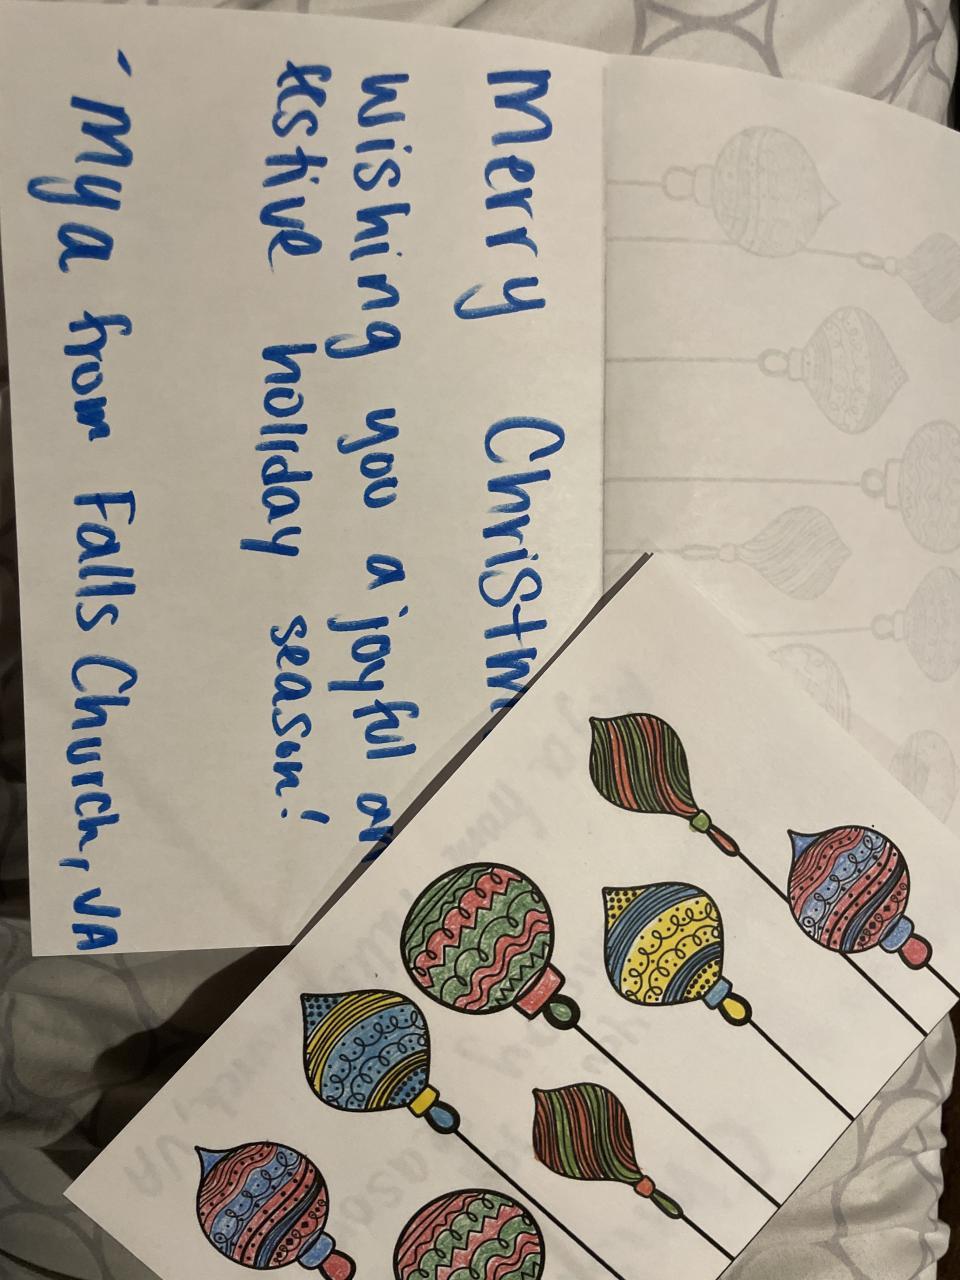 Merry Christm
Wishing you a joyful an
festive holiday season!
- Mya from Falls Church, VA